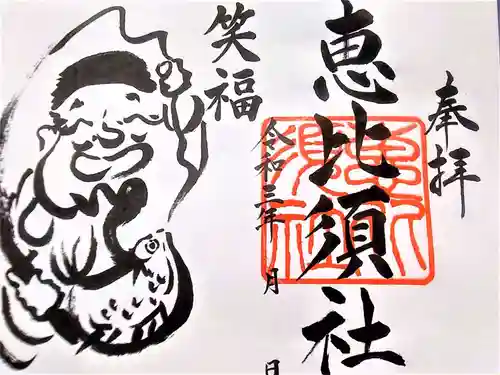 奉拝
恵比須社
令和三年 月 日
笑福